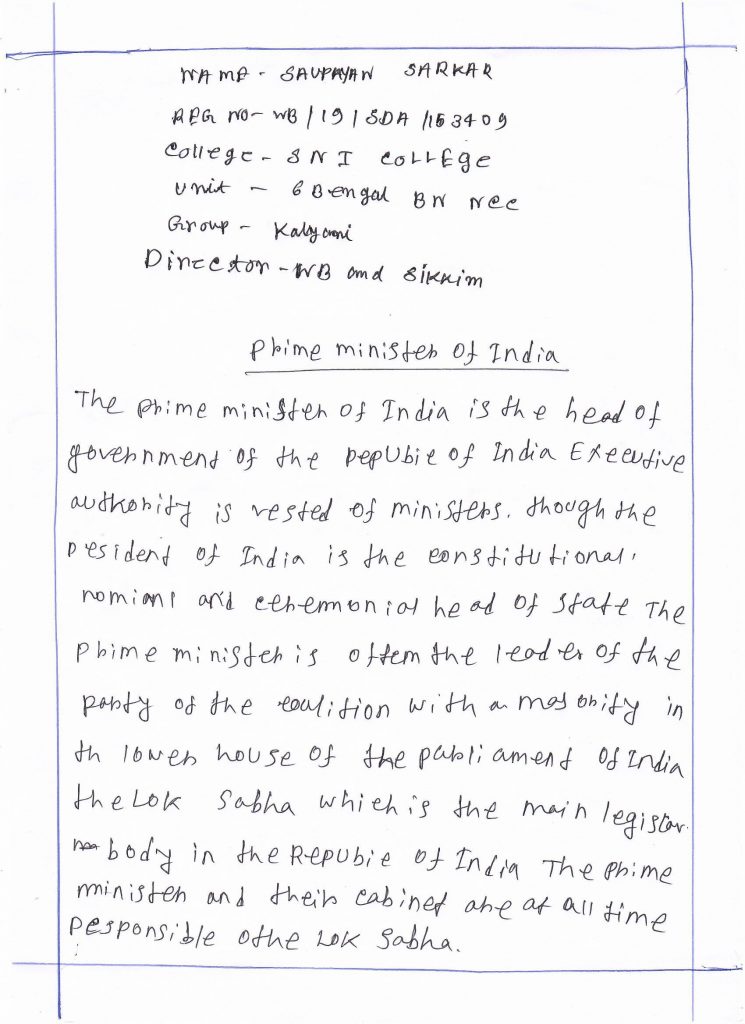 NAME - SAUPAYAN SARKAR
REG NO- WB/19/SDA/153409
College - SNI COLLEGE
Unit - 6 Bengal BN NCC
Group - Kalyani
Director - WB and Sikkim
Prime minister of India
The prime minister of India is the head of
government of the Repubic of India Executive
authority is vested of ministers. though the
president of India is the constitutional.
nominal and ceremonial head of state The
prime minister is often the leader of the
party of the coalition with a majority in
th lower house of the parliament of India
the LOK Sabha which is the main legislar.
body in the Repubic of India The prime
minister and their cabinet are at all time
responsible othe LOK Sabha.